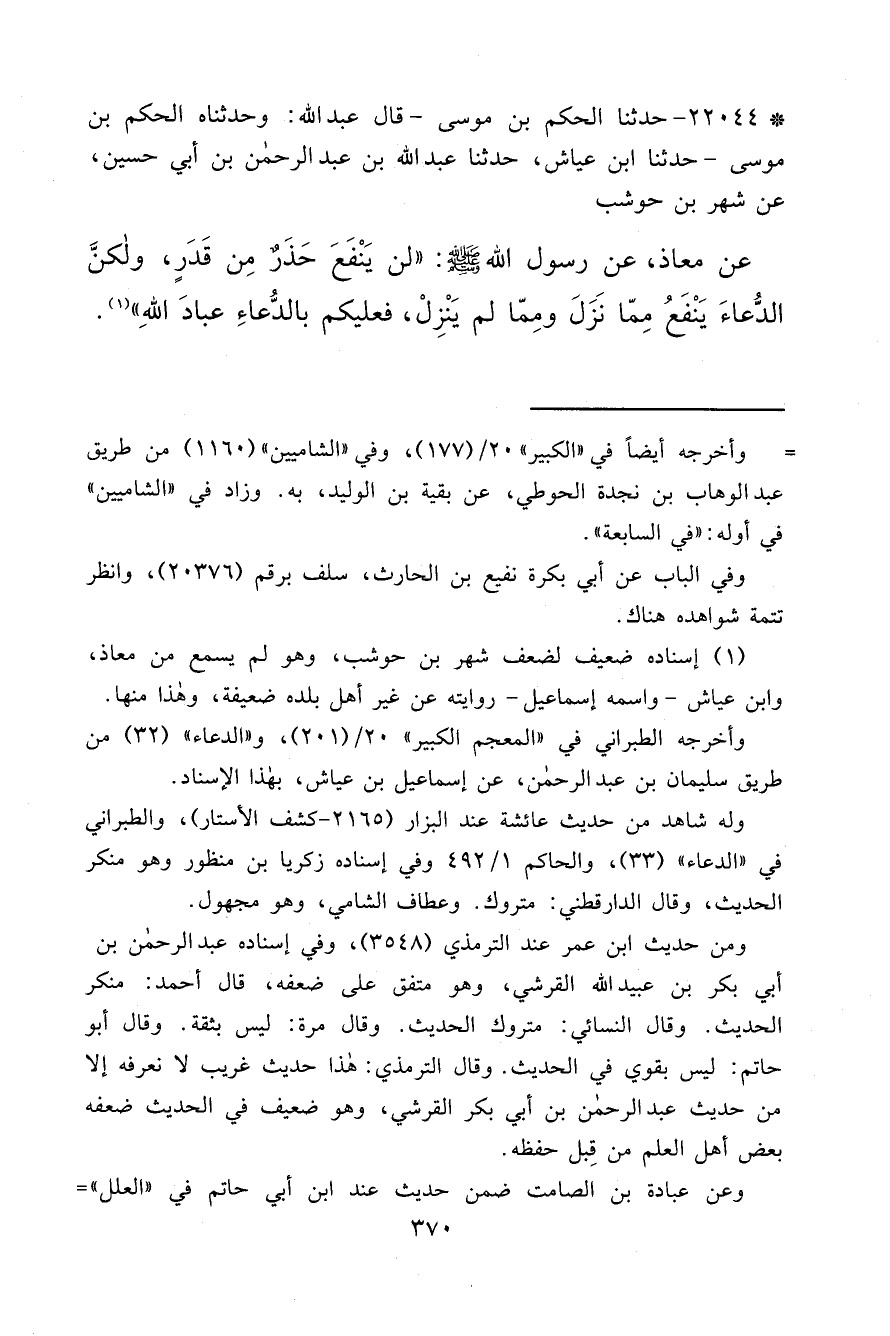 * ٢٢٠٤٤- حدثنا الحكم بن موسى - قال عبد الله: وحدثناه الحكم بن
موسى - حدثنا ابن عياش، حدثنا عبد الله بن عبد الرحمٰن بن أبي حسين،
عن شهر بن حوشب
عن معاذ، عن رسول الله ﷺ: «لن يَنْفَعَ حَذَرٌ مِن قَدَرٍ، ولٰكنَّ
الدُّعاءَ يَنْفَعُ مِمّا نَزَلَ ومِمّا لم يَنْزِلْ، فعليكم بالدُّعاءِ عبادَ اللهِ»(١).
= وأخرجه أيضاً في «الكبير» ٢٠/(١٧٧)، وفي «الشاميين» (١١٦٠) من طريق
عبد الوهاب بن نجدة الحوطي، عن بقية بن الوليد، به. وزاد في «الشاميين»
في أوله: «في السابعة».
وفي الباب عن أبي بكرة نفيع بن الحارث، سلف برقم (٢٠٣٧٦)، وانظر
تتمة شواهده هناك.
(١) إسناده ضعيف لضعف شهر بن حوشب، وهو لم يسمع من معاذ،
وابن عياش - واسمه إسماعيل - روايته عن غير أهل بلده ضعيفة، وهٰذا منها.
وأخرجه الطبراني في «المعجم الكبير» ٢٠/(٢٠١)، و«الدعاء» (٣٢) من
طريق سليمان بن عبد الرحمٰن، عن إسماعيل بن عياش، بهٰذا الإسناد.
وله شاهد من حديث عائشة عند البزار (٢١٦٥-كشف الأستار)، والطبراني
في «الدعاء» (٣٣)، والحاكم ٤٩٢/١ وفي إسناده زكريا بن منظور وهو منكر
الحديث، وقال الدارقطني: متروك. وعطاف الشامي، وهو مجهول.
ومن حديث ابن عمر عند الترمذي (٣٥٤٨)، وفي إسناده عبد الرحمٰن بن
أبي بكر بن عبيد الله القرشي، وهو متفق على ضعفه، قال أحمد: منكر
الحديث. وقال النسائي: متروك الحديث. وقال مرة: ليس بثقة. وقال أبو
حاتم: ليس بقوي في الحديث. وقال الترمذي: هٰذا حديث غريب لا نعرفه إلا
من حديث عبد الرحمٰن بن أبي بكر القرشي، وهو ضعيف في الحديث ضعفه
بعض أهل العلم من قِبل حفظه.
وعن عبادة بن الصامت ضمن حديث عند ابن أبي حاتم في «العلل»=
٣٧٠